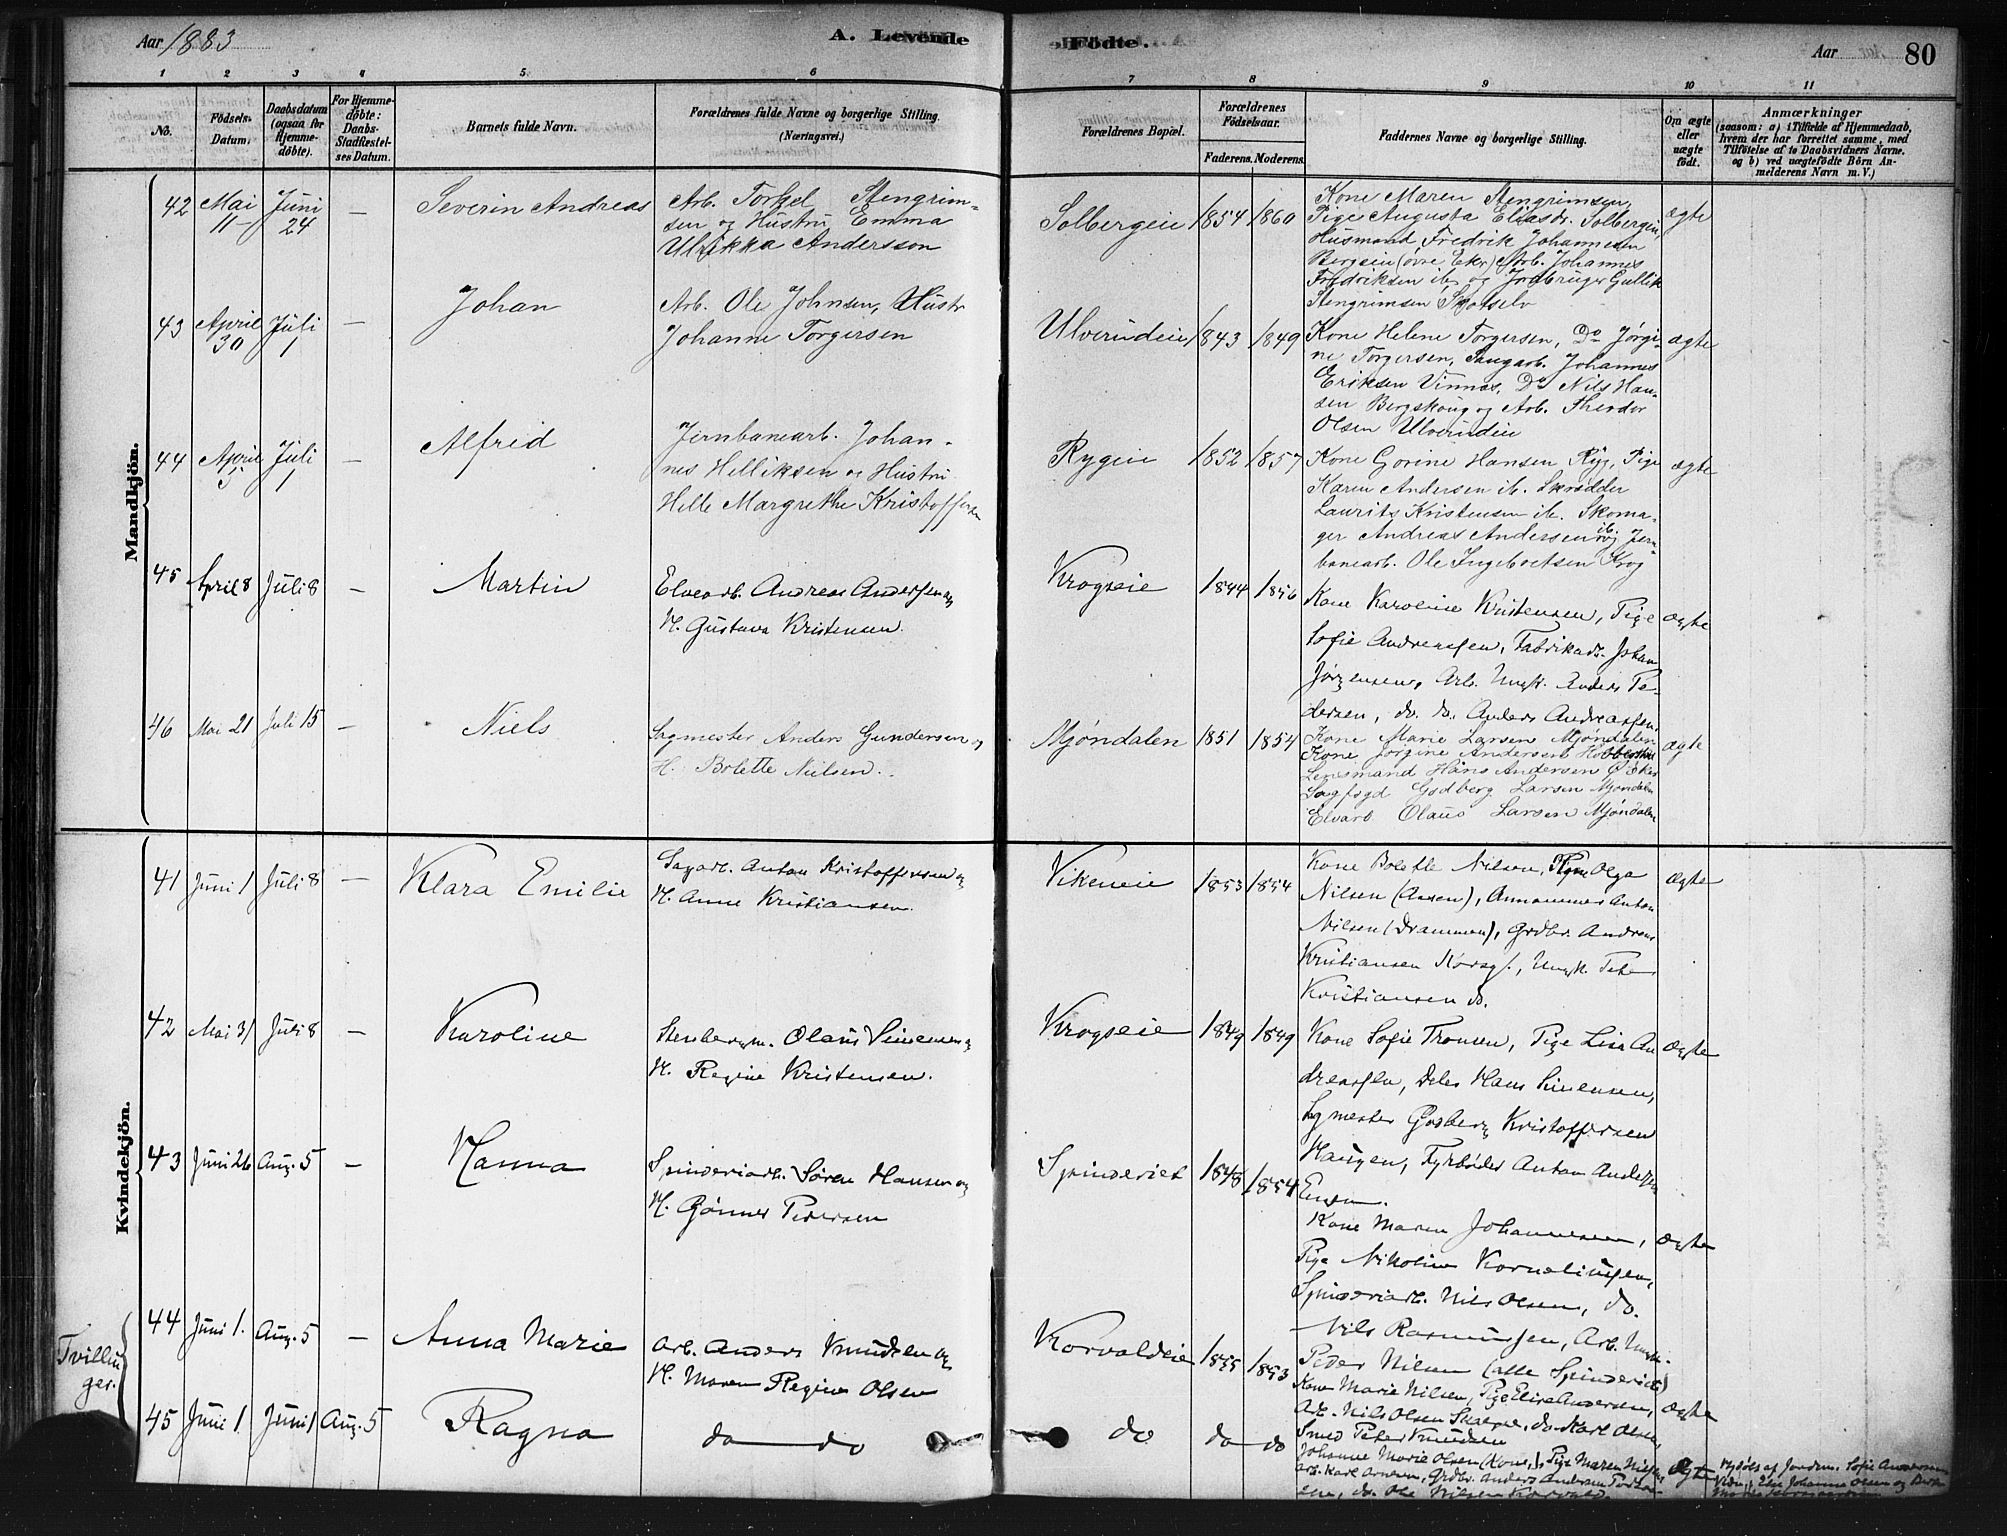 Aar 1883
A. Levende
Födte.
Aar
80
1 2 3 4 5 6 7 8 9 10 11
No.
Födsels-Datum.
Daabsdatum (ogsaa for Hjemme-döbte).
For Hjemme-döbte: Daabs-Stadfæstel-ses Datum.
Barnets fulde Navn.
Forældrenes fulde Navne og borgerlige Stilling. (Næringsvei.)
Forældrenes Bopæl.
Forældrenes Födselsaar.
Faderens. Moderens.
Faddernes Navne og borgerlige Stilling.
Om ægte eller uægte födt.
Anmærkninger (saasom: a) i Tilfælde af Hjemmedaab, hvem der har forrettet samme, med Tilföielse af to Daabsvidners Navne. og b) ved uægtefödte Börn An-melderens Navn m. V.)
Mandkjön.
42 Mai 11 Juni 24 — Severin Andreas
Arb. Torkel Stengrim-
sen og Hustru Emma
Ulrikka Andersson
Solbergeie 1854 1860
Kone Maren Stengrimsen,
Pige Augusta Eliasdr. Solbergeie,
Husmand Fredrik Johannesen
Bergseie (øvre Eker) Arb. Johannes
Fredriksen ib. og Jordbruger Gullik
Stengrimsen Skotselv
ægte
43 April 30 Juli 1 — Johan
Arb. Ole Johnsen, Hustr
Johanne Torgersen
Ulverudeie 1843 1849
Kone Helene Torgersen, Do Jørgi-
ne Torgersen, Saugarb. Johannes
Eriksen Vinnæs, Do Nils Han-
sen Bergskoug og Arb. Theodor
Olsen Ulverudeie
ægte
44 April 5 Juli 1 — Alfred
Jernbanearb. Johan-
nes Helliksen og Hustru
Helle Margrethe Kristoffersen
Rygeie 1852 1857
Kone Gorine Hansen Ryg, Pige
Karen Andersen ib. Skrædder
Laurits Kristensen ib. Skoma-
ger Andreas Andersen ib. og Jern-
banearb. Ole Ingebretsen Krog
ægte
45 April 8 Juli 8 — Martin
Elvearb. Andreas Anderssen og
H. Gustava Kristensen.
Krogseie 1844 1856
Kone Karoline Kristensen, Pige
Sofie Andreassen, Fabrikarb. Johan
Jørgensen, Arb. Ungk. Anders Pe-
dersen, do. do. Anders Andreassen.
ægte
46 Mai 21 Juli 15 — Niels
Sagmester Anders Gundersen og
H. Bolette Nielsen.
Mjøndalen 1851 1854
Kone Marie Larsen Mjøndalen
Kone Jørgine Andersen
Lensmand Hans Andersen Ø. Eker
Sagfogd Godberg Larsen Mjøndalen
Elvarb Olaus Larsen Mjøndalen
ægte
Kvindekjön.
41 Juni 1 Juli 8 — Klara Emilie
Sagarb. Anton Kristoffersen og
H. Anne Kristiansen.
Vikeneie 1853 1854
Kone Bolette Nilsen, Pige Olga
Nilsen (Aasen), Anton
Nilsen (Drammen), Grdbr. Andreas
Kristiansen Horsgf., Ungk. Peter
Kristiansen do.
ægte
42 Mai 31 Juli 8 — Karoline
Olaus Simensen og
H. Regine Kristensen.
Krogseie 1849 1849
Kone Sofie Tronsen, Pige Lisa An
dreassen, Hans Simensen,
Sgmester Gosberg Kristoffersen
Haugen, Fyrbøder Anton Anderssen
ægte
43 Juni 26 Aug. 5 — Hanna
Spinderiarb. Søren Hansen og
H. Gønner Pedersen
Spinderiet 1848 1854
Kone Maren Johannesen,
Pige Nikoline Korneliussen,
Spinderiarb. Nils Olsen, do.
Nils Rasmussen, Arb. Ungk.
Peder Nilsen (alle Spinderiet)
ægte
Tvillin
ger.
44 Juni 1. Aug. 5 — Anna Marie
Arb. Anders Knudsen og
H. Maren Regine Olsen
Korvaldeie 1855 1853
Kone Marie Nilsen, Pige Elise Andersen,
Arb. Nils Olsen do. Karl Olsen,
Smed Peter Knudsen
ægte
45 Juni 1. Juni 1 Aug. 5 Ragna
do do
do do do
Johanne Marie Olsen (Kone), Pige Maren Nilsen
Arb. Karl Grdbr. Anders Andersen
do. Ole Nilsen Korvald.
ægte
Hjdøbt af Jordm. Sofie Andersen
Vidn.: Else Johanne Olsen og